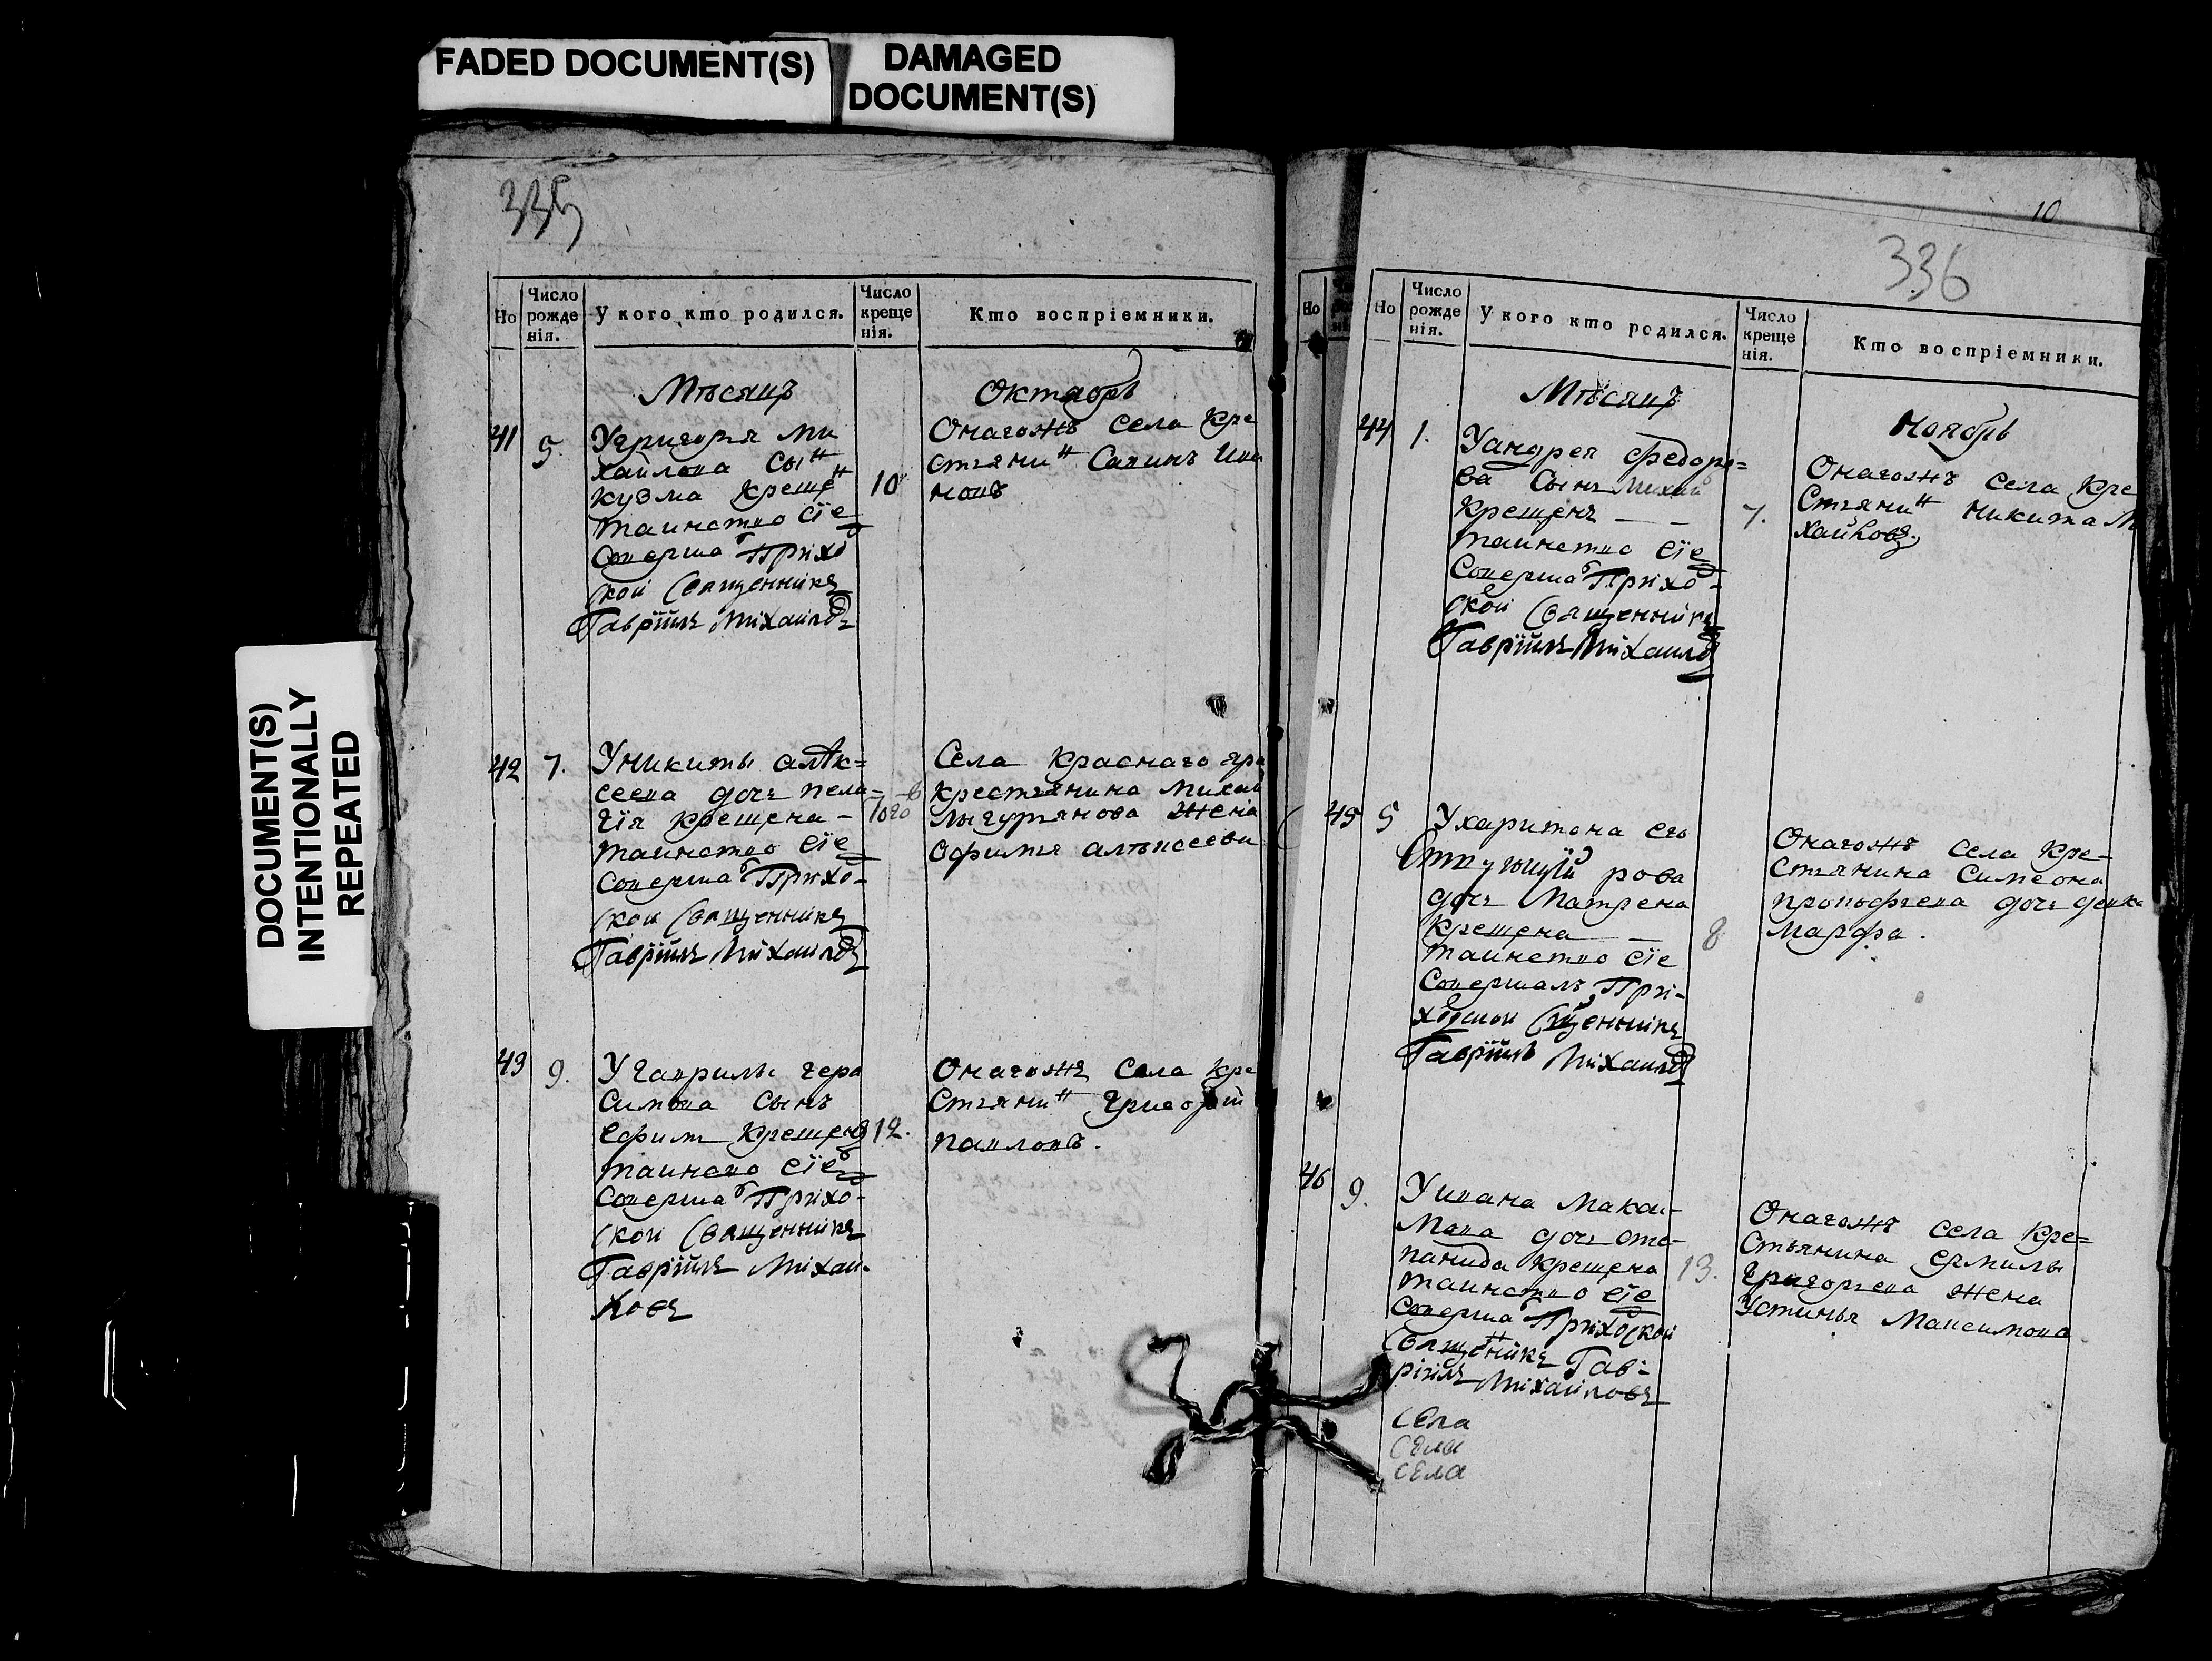 FADED DOCUMENT(S)
DAMAGED
DOCUMENT(S)
DOCUMENT(S)
INTENTIONALLY
REPEATED
335
Но
Число рожде нія.
У кого кто родился.
Число креще нія.
Кто воспріемники.
Мѣсяцъ Октябрь
41 5. Угригорья ми
хайлова сынъ
кузма крещенъ 10
таинство сїе
соверша приход
ской священникъ
Гаврїилъ Михайловъ
Онагожъ села кре
стьянинъ Савинъ Ива
новъ
42 7. Уникиты алѣк=
сеева дочь пела=
гїя крещена –
таинство сїе
соверша прихо-
ской священникъ
Гаврїилъ Михайловъ
Села Краснаго яра
крестьянина Михай
жена
Офимья алѣксеева
43 9. Угаврилы гера
симова сынъ
Ефимъ крещенъ 12.
таинсво сїе
соверша прихо-
ской священникъ
Гаврїилъ Михай-
ловъ
Онагожъ села кре
стьянинъ Григорей
павловъ.
10
336
Но
Но
Число рожде нія.
У кого кто родился.
Число креще нія.
Кто воспріемники.
Мѣсяцъ Ноябрь
44 1. Уандрея федоро=
ва сынъ михай
крещенъ – – 7.
таинство сїе
соверша прихо-
ской священникъ
Гаврїилъ Михайловъ
Онагожъ села кре
стьянинъ никита М
хайловъ.
45 5 Ухаритона его
рова
дочь Матрена
крещена – 8
таинство сїе
совершалъ при-
ходской священникъ
Гаврїилъ Михайловъ
Онагожъ села кре-
стьянина симеона
прокофьева дочь девка
марфа.
46 9. Уивана макси-
мова дочь сте-
панида крещена 13.
таинство сїе
соверша приходской
священникъ Гав-
рїилъ Михайловъ
Села
села
села
Онагожъ села кре=
стьянина ермилы
григорьева жена
Устинья Максимова